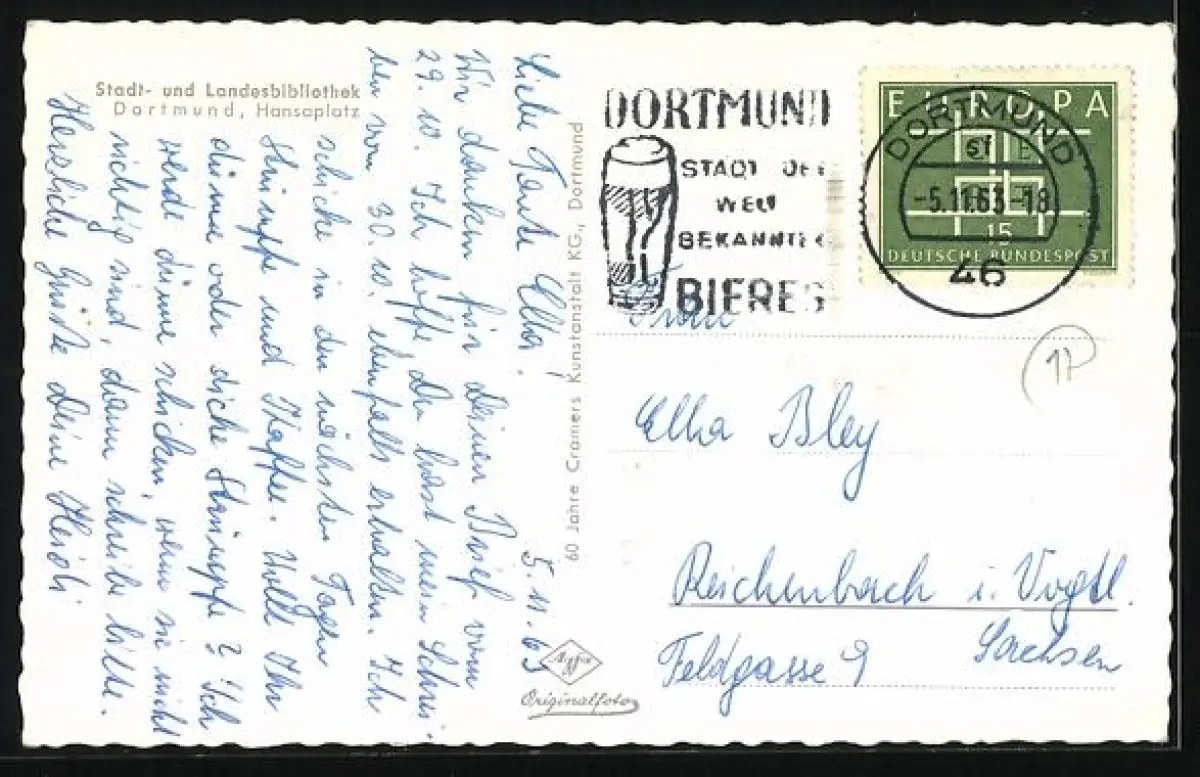 Stadt- und Landesbibliothek
Dortmund, Hansaplatz
5. 11. 63
Liebe Tante Elka!
Wir danken für Deinen Brief vom
29. 10. Ich hoffe Du hast mein Schrei-
ben vom 30. 10. ebenfalls erhalten. Ich
schicke in den nächsten Tagen
Strümpfe und Kaffee. Wollt Ihr
dünne oder dicke Strümpfe? Ich
werde dünne schicken, wenn sie nicht
richtig sind, dann schreibe bitte.
Herzliche Grüße Deine Heidi
60 Jahre Cramers Kunstanstalt KG., Dortmund
Agfa
Originalfoto
DORTMUND
STADT DER
WELT
BEKANNTEN
BIERES
EUROPA
15
DEUTSCHE BUNDESPOST
DORTMUND
-5.11.63-18
46
17
Frau
Elka Bley
Reichenbach i. Vogtl.
Sachsen
Feldgasse 9